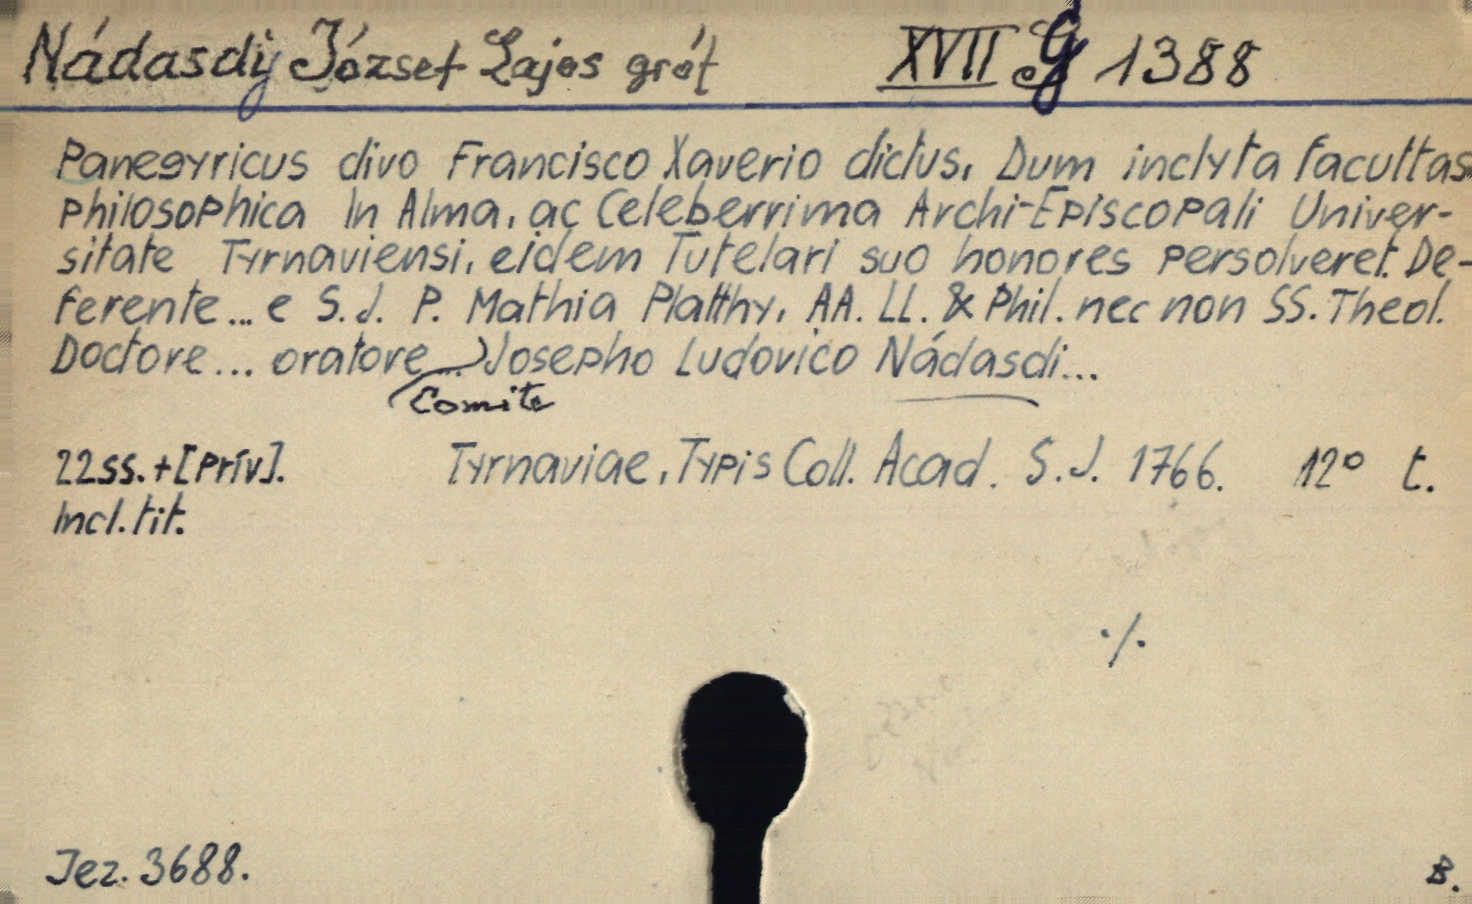 Nádasdy József Lajos gróf XVII G 1388
Panegyricus divo Francisco Xaverio dictus, Dum inclyta facultas
philosophica In Alma, ac Celeberrima Archi-Episcopali Univer-
sitate Tyrnaviensi, eidem Tutelari suo honores persolveret. De-
ferente... e S. J. P. Mathia Platthy, AA. LL. & Phil. nec non SS. Theol.
Doctore... oratore... Josepho Ludovico Nádasdi...
Comite
22ss.+[Priv]. Tyrnaviae, Typis Coll. Acad. S. J. 1766. 12° t.
Incl. tit.
./.
Jez. 3688. B.